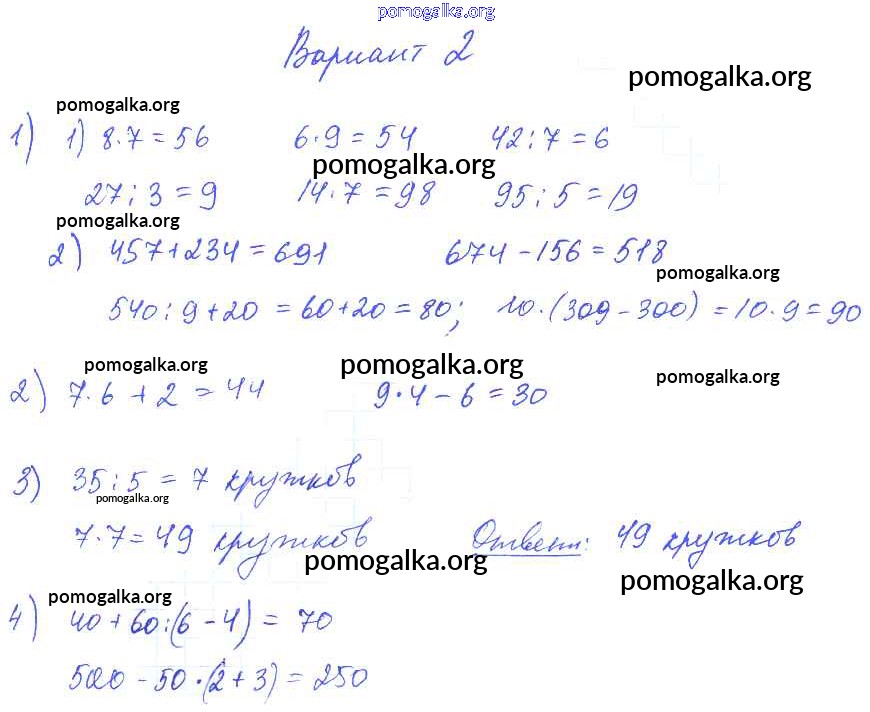 pomogalka.org
Вариант 2
pomogalka.org
pomogalka.org
1) 1) 8·7=56 6·9=54 42:7=6
pomogalka.org
27:3=9 14·7=98 95:5=19
pomogalka.org
2) 457+234=691 674-156=518
pomogalka.org
540:9+20=60+20=80; 10·(309-300)=10·9=90
pomogalka.org pomogalka.org pomogalka.org
2) 7·6+2=44 9·4-6=30
3) 35:5=7 кружков
pomogalka.org
7·7=49 кружков Ответ: 49 кружков
pomogalka.org pomogalka.org
pomogalka.org
4) 40+60:(6-4)=70
500-50·(2+3)=250